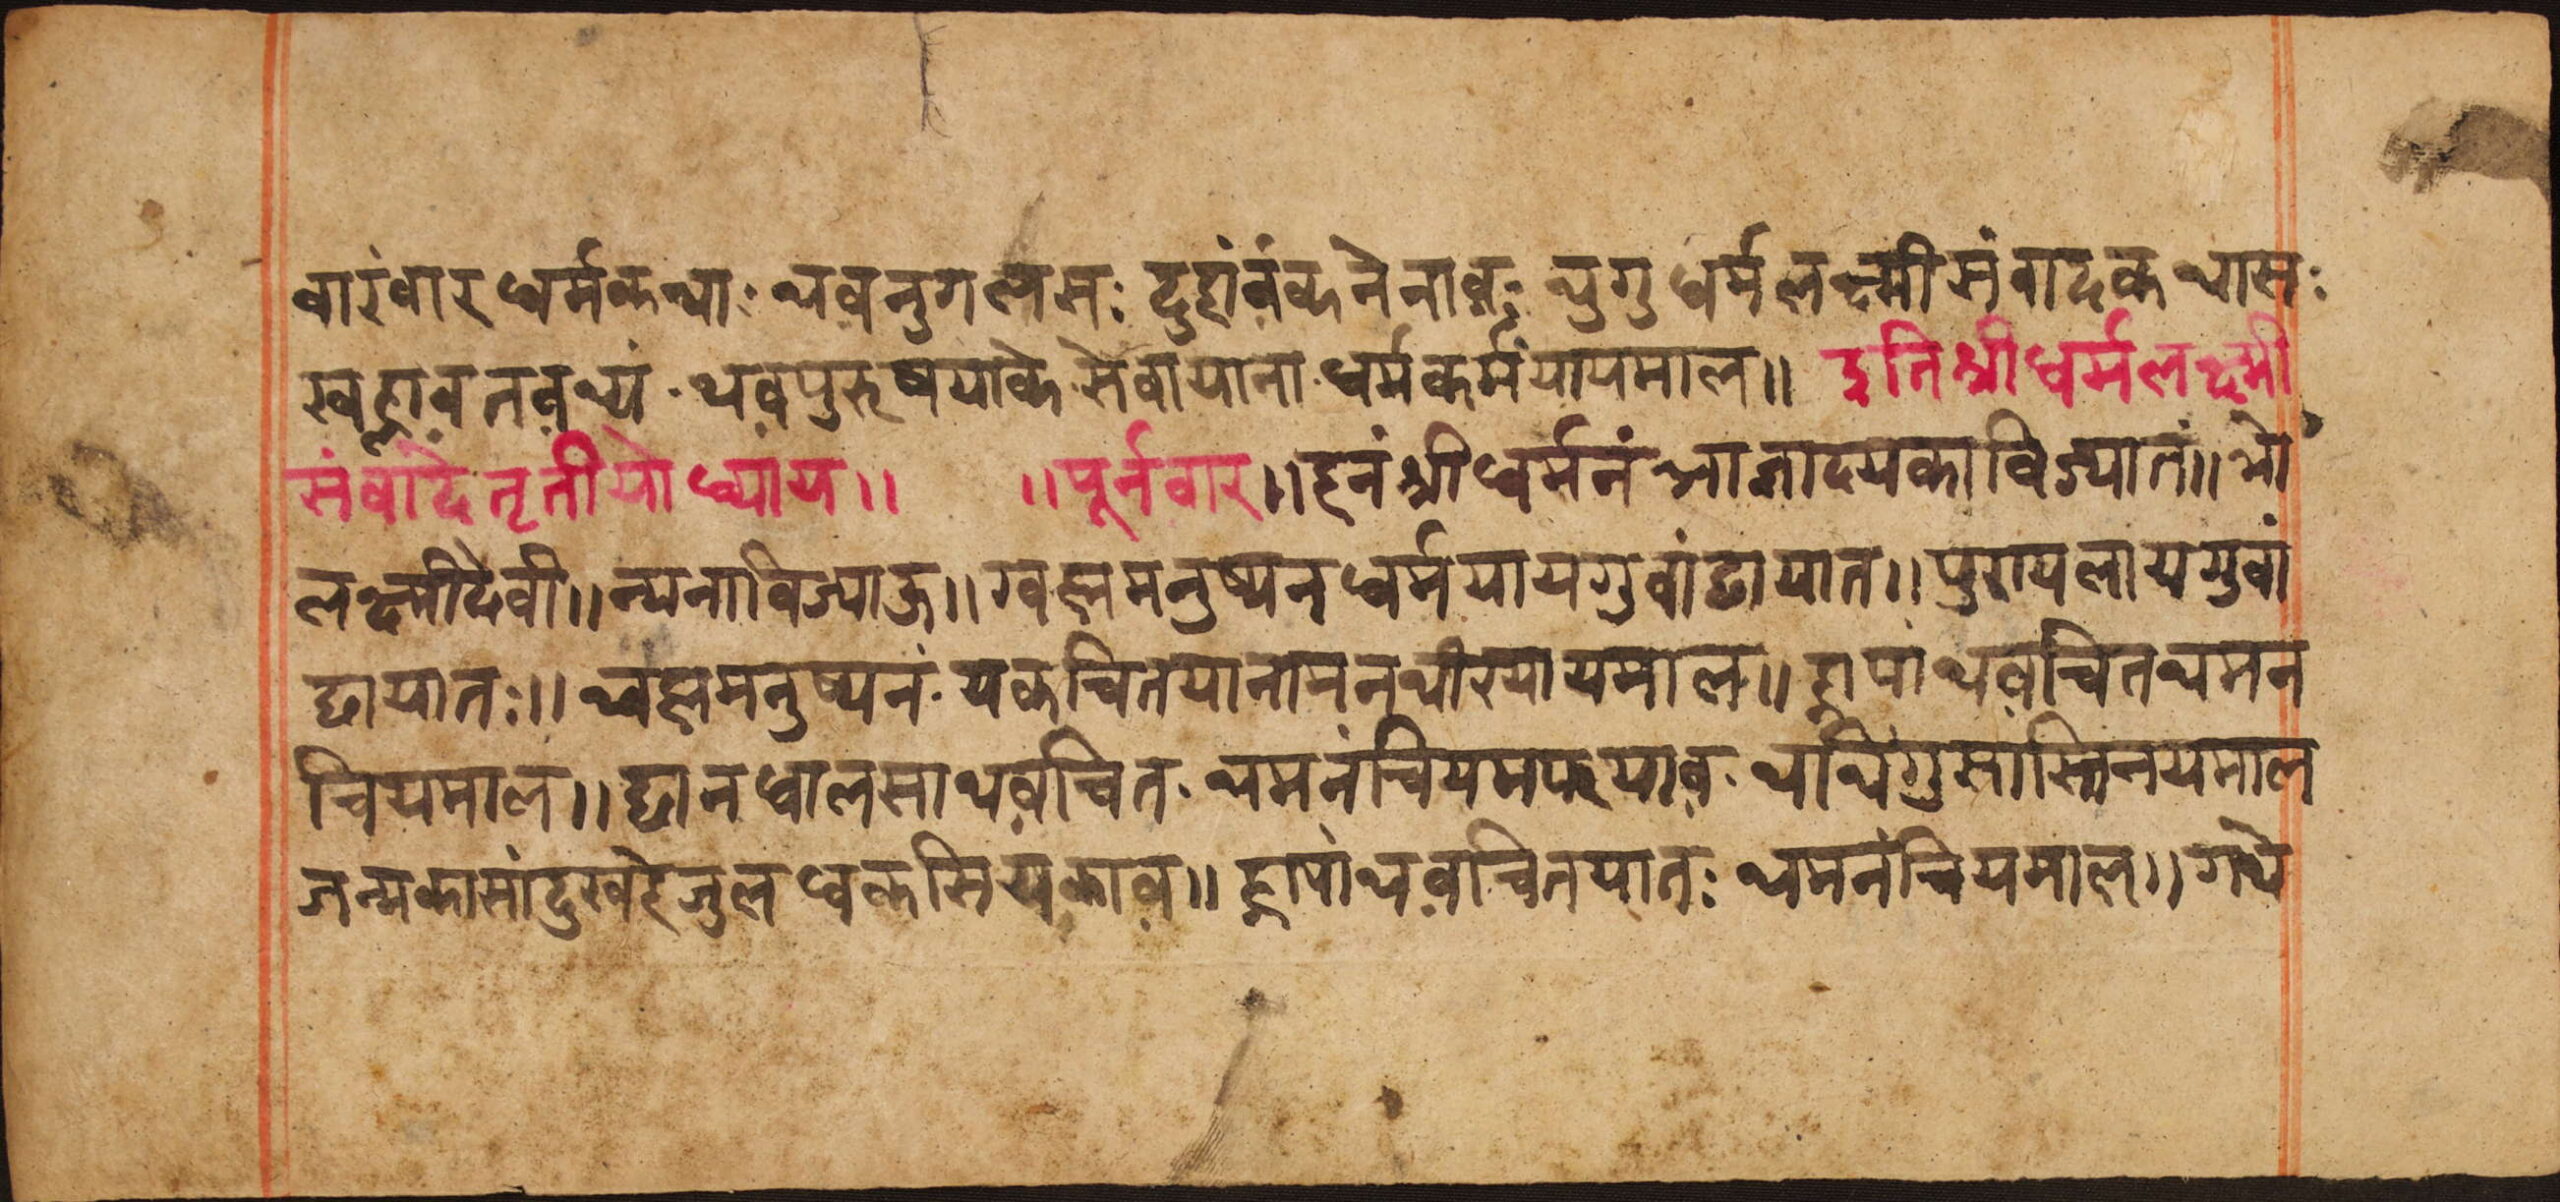 वारंवार धर्मकथाः थव़नुगलसः दुहांवंकनेनाव़ः थुगु धर्मलक्ष्मीसंवादकथासः
स्वह्नाव तव़थ्यं थव़पुरुषयाके सेवायाना धर्मकर्मयायमाल॥ इतिश्रीधर्मलक्ष्मी
संवादे तृतीयोध्याय॥ ॥पूर्नवार॥ हनंश्रीधर्मनं आज्ञादयकाविज्यातं॥ भो
लक्ष्मीदेवी॥ न्यनाविज्याऊ॥ ग्वह्ममनुष्यन धर्मयायगुवांछायात॥ पुरायलायगुवां
छायातः॥ थ्वह्ममनुष्यनं यकचितयानामनथीरयायमाल॥ ह्नापां थव़चितथमन
चियमाल॥ छान धालसा थव़चित थमनंचियमफयाव़ थथिंगुसास्तिनयमाल
जन्मकासांदुखहेजुल धकसियकाव़॥ ह्नापांथव़चितयातः थमनंचियमाल॥ गथे